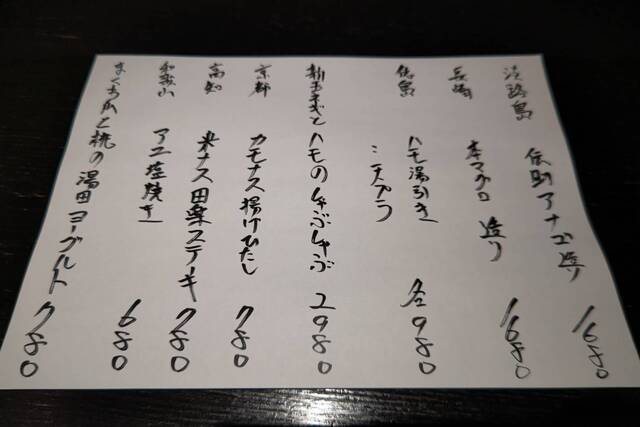 淡路島 伝助アナゴ造り 1680
長崎 本マグロ 造り 1680
徳島 ハモ湯引き 各980
ミニ天プラ
新玉ネギとハモのしゃぶしゃぶ 2980
京都 カモナス揚げひたし 780
高知 米ナス田楽ステーキ 780
和歌山 アユ塩焼き 680
まくわ瓜と桃の湯田ヨーグルト 780